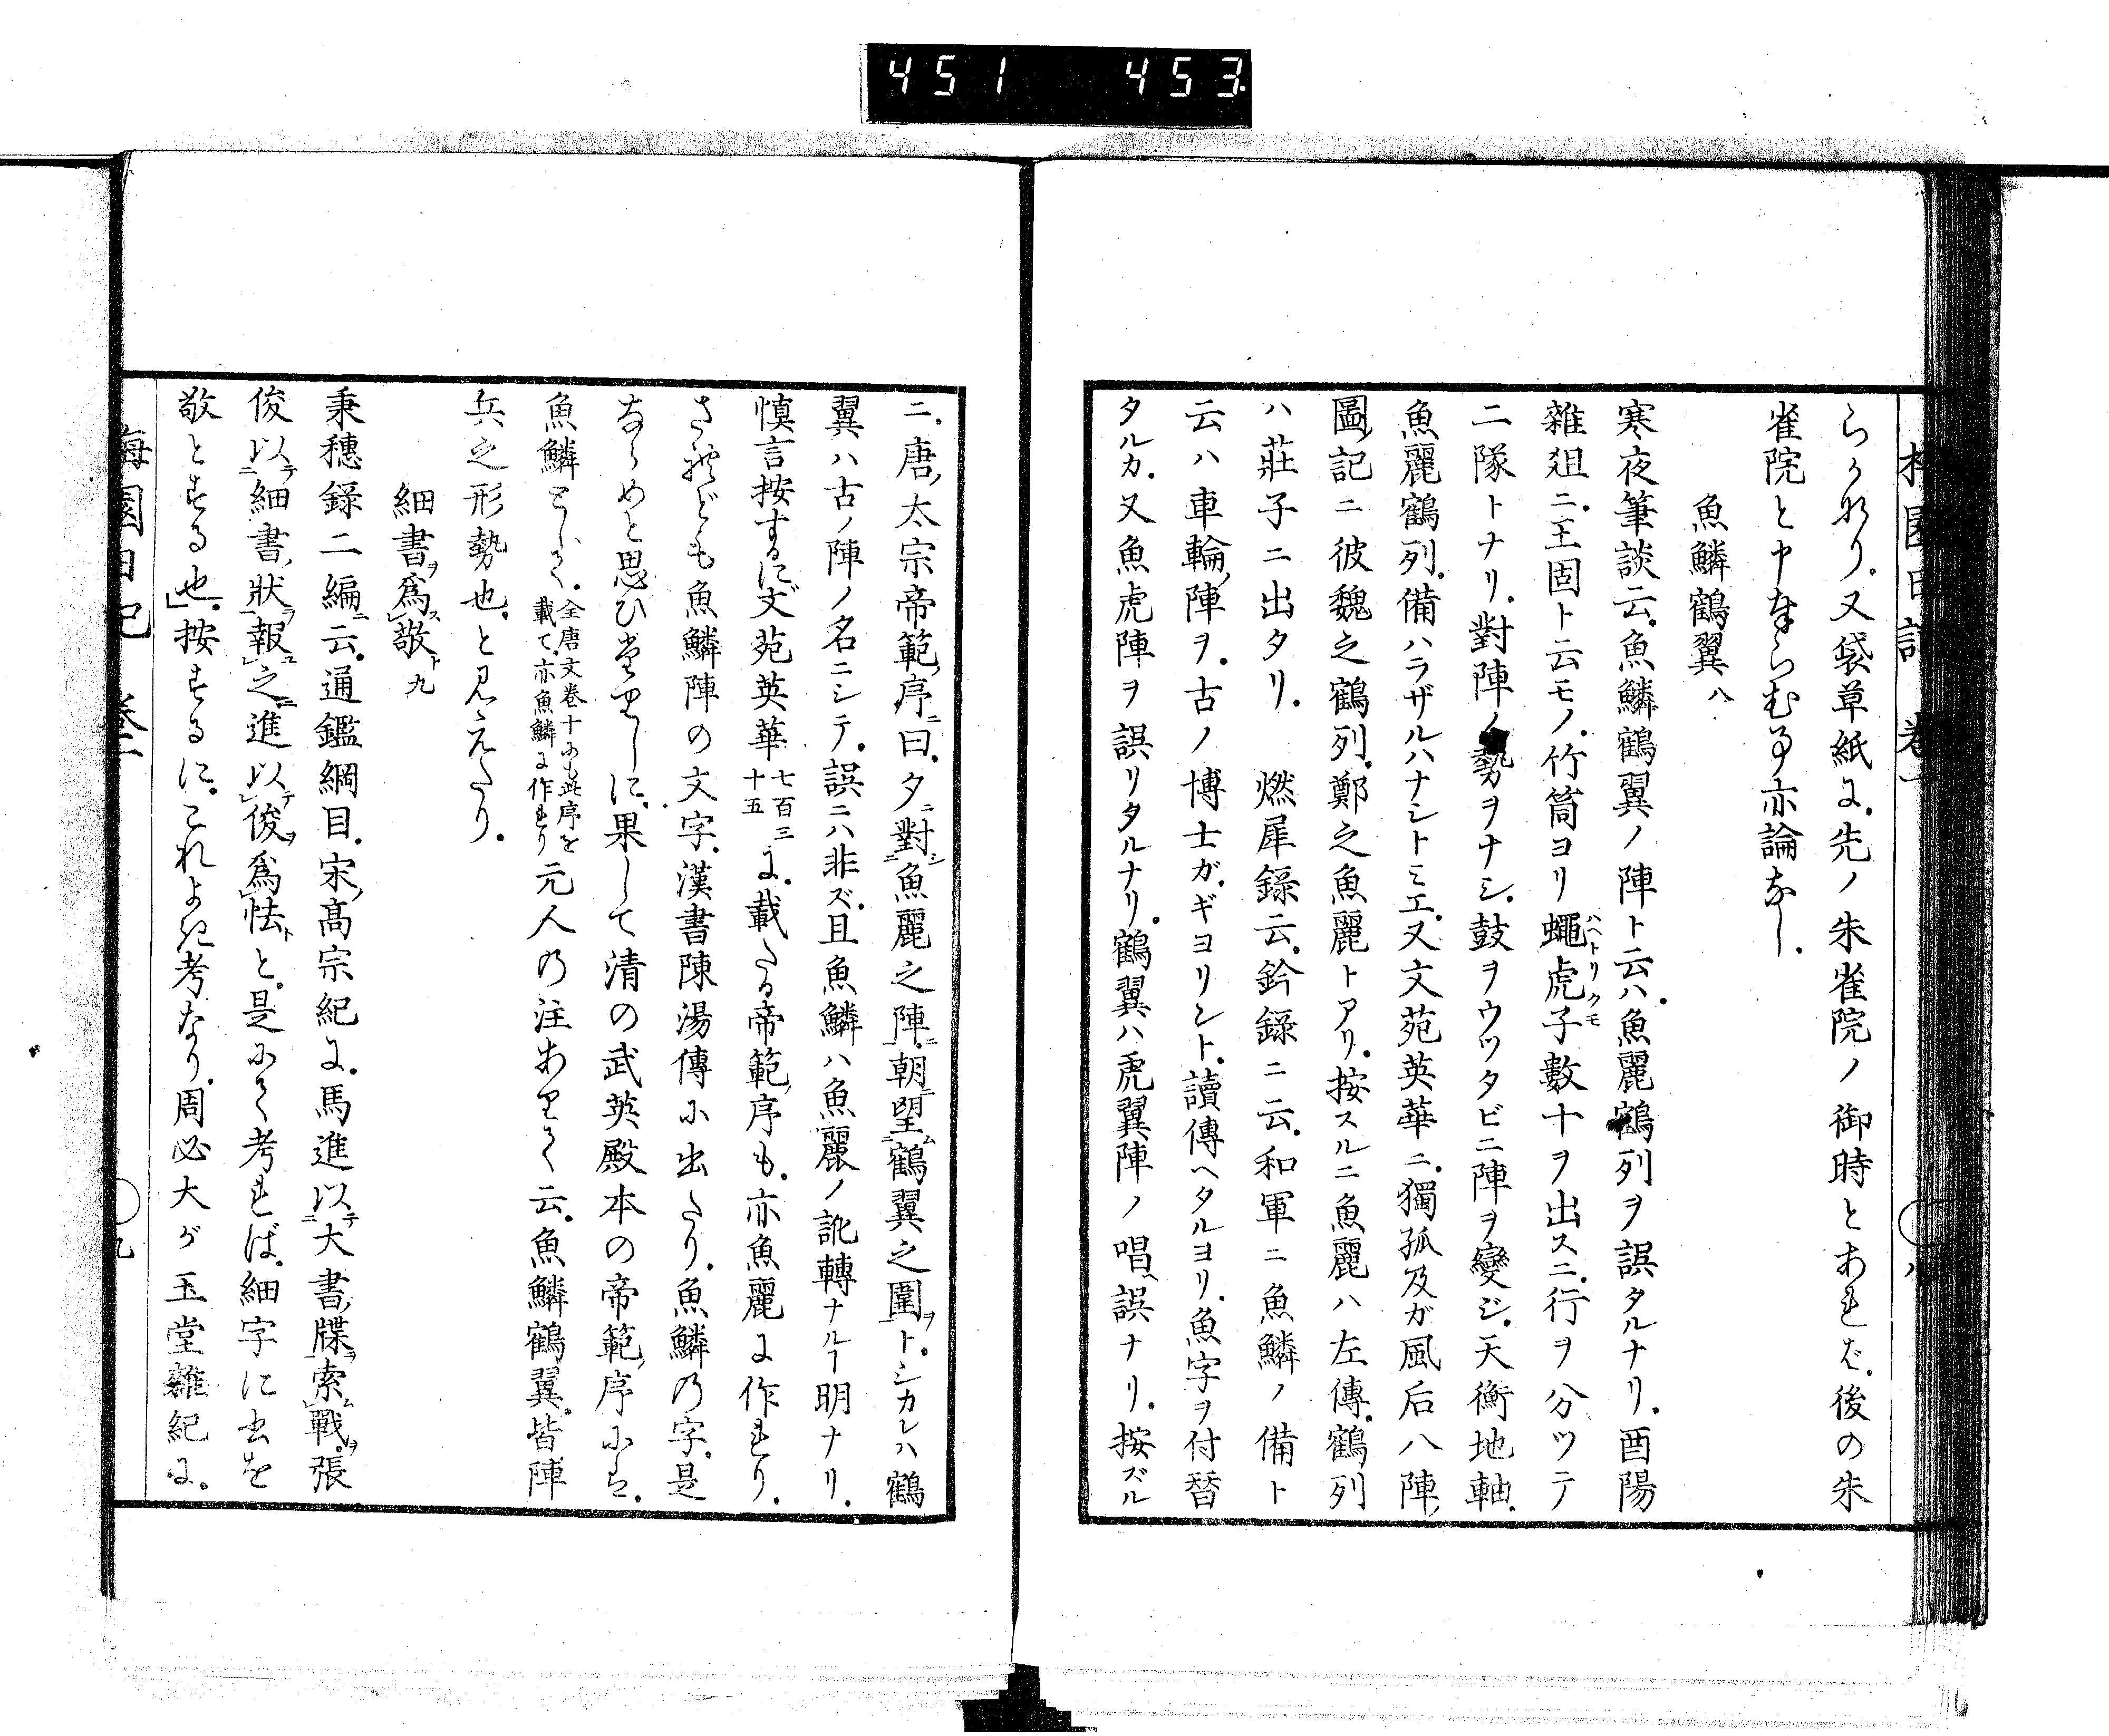 451 453
梅園日記 卷一 八
らかなり。又袋草紙に。先ノ朱雀院ノ御時とあれば。後の朱
雀院と申奉らむ事亦論なし。
魚鱗鶴翼 八
寒夜筆談云。魚鱗鶴翼ノ陣ト云ハ。魚麗鶴列ヲ誤タルナリ。酉陽
雜爼ニ。王固ト云モノ。竹筒ヨリ蠅虎子(ハヘトリクモ)數十ヲ出スニ。行ヲ分ツテ
二隊トナリ。對陣ノ勢ヲナシ。鼓ヲウツタビニ陣ヲ變ジ。天衡地軸。
魚麗鶴列。備ハラザルハナシトミエ。又文苑英華ニ。獨孤及ガ風后八陣
圖記ニ彼魏之鶴列。鄭之魚麗トアリ。按スルニ魚麗ハ左傳。鶴列
ハ莊子ニ出タリ。 燃犀錄云。鈐錄ニ云。和軍ニ魚鱗ノ備ト
云ハ車輪陣ヲ。古ノ博士ガ。ギヨリント。讀傳ヘタルヨリ。魚字ヲ付替
タルカ。又魚虎陣ヲ誤リタルナリ。鶴翼ハ虎翼陣ノ唱誤ナリ。按ズル
ニ。唐太宗帝範序ニ曰。夕ニ對シ魚麗之陣ニ。朝ニ望ム鶴翼之圍ヲト。シカレハ鶴
翼ハ古ノ陣ノ名ニシテ。誤ニハ非ズ。且魚鱗ハ魚麗ノ訛轉ナルヿ明ナリ。
愼言按するに。文苑英華 七百三十五 に。載たる帝範序も。亦魚麗に作れり。
されども魚鱗陣の文字。漢書陳湯傳に出たり。魚鱗の字。是
ならめと思ひ居りしに。果して清の武英殿本の帝範序には。
魚鱗とあり。全唐文卷十にも此序を載て。亦魚鱗に作れり 元人の注ありて云。魚鱗鶴翼。皆陣
兵之形勢也。と見えたり。
細書ヲ爲ス敬ト 九
秉穗錄二編ニ云。通鑑綱目。宋高宗紀に。馬進以テ大書牒ヲ索ム戰ヲ。張
俊以テ細書狀ヲ報ユ之ニ。進以テ俊ヲ爲怯ト と。是にて考れば。細字に書を
敬とする也。按するに。これよき考なり。周必大が玉堂雜紀に。
梅園日記 卷一 九